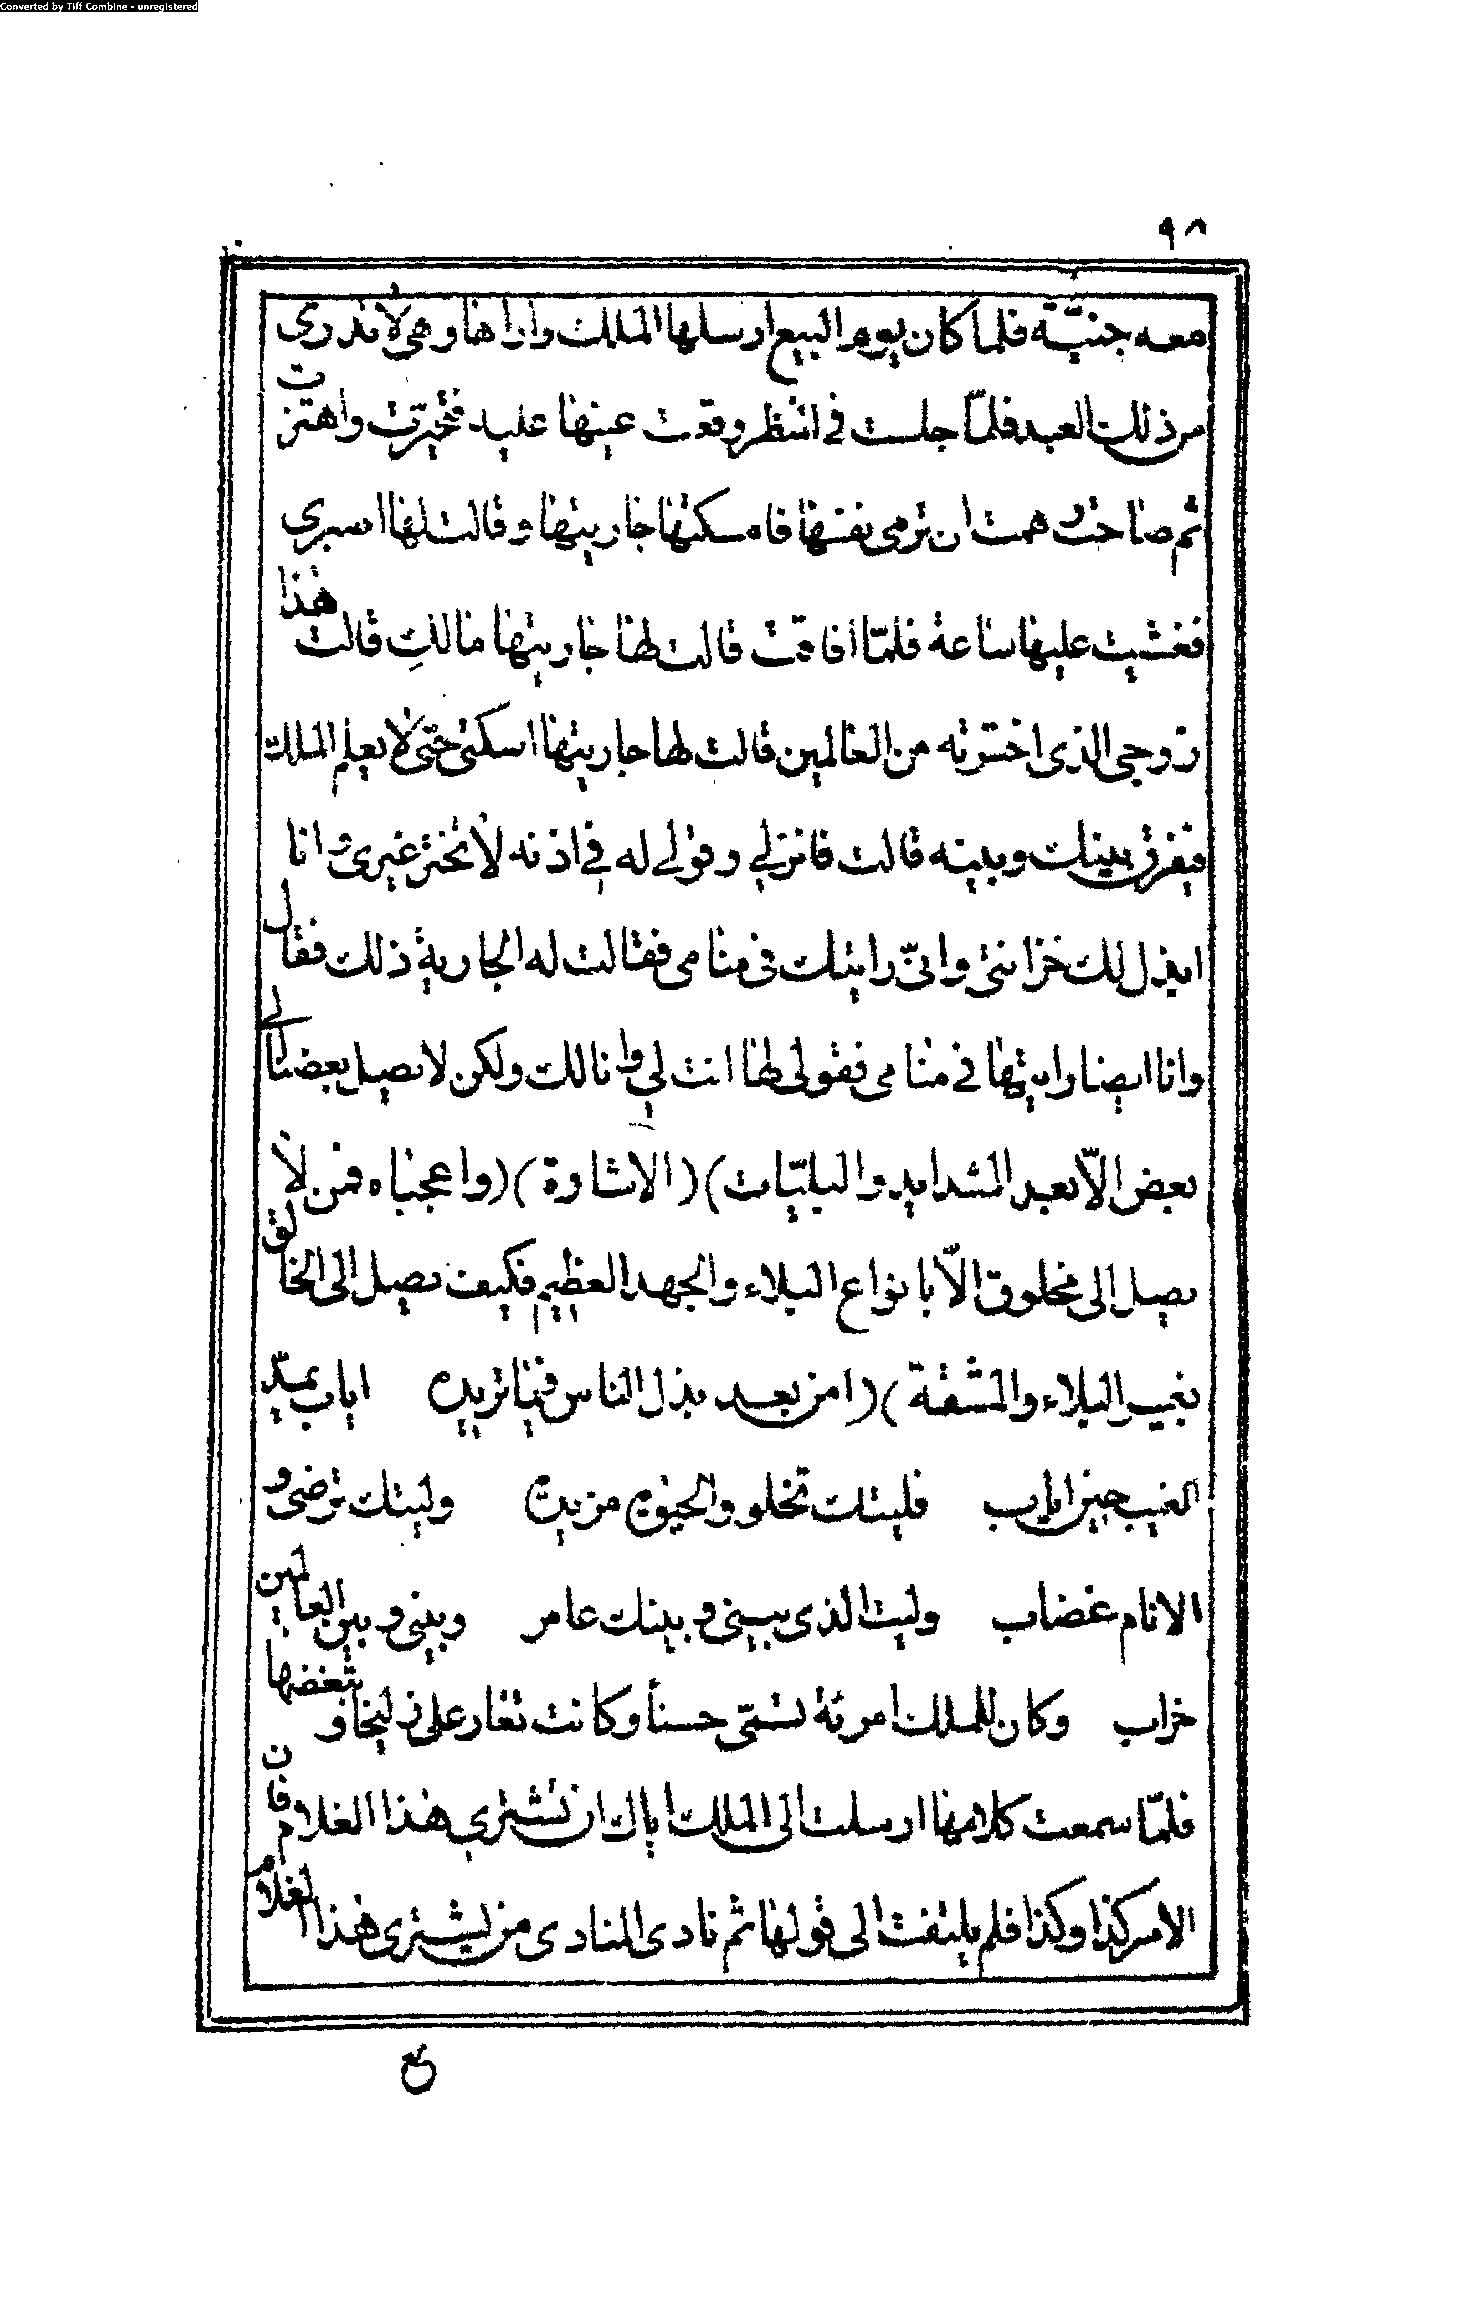 Converted by Tiff Combine - unregistered
٩٨
معه جنيّة فلما كان يوم البيع ارسلها الملك واراها وهى لا تدرى
من ذلك العبد فلمّا جلست في المنظر وقعت عينها عليه فتحيرت واهتزت
ثم صاحت وهمت ان ترمى نفسها فامسكتها جاريتها وقالت لها اصبرى
فغشيت عليها ساعة فلمّا افاقت قالت لها جاريتها مالكِ قالت هذا
زوجى الذى اخترته من العالمين قالت لها جاريتها اسكتى حتى لا يعلم الملك
فيفرق بينك وبينه قالت فانزلي وقولے له في اذنه لا تختر غيرى وانا
ابذل لك خزاينى وانّى رايتك فى منامى فقالت له الجارية ذلك فقال
وانا ايضا رايتها في منامى فقولى لها انت لي وانا لك ولكن لا يصل بعضنا الے
بعض الاّ بعد الشدايد والبليّات) (الاشارة) (واعجباه فمن لا
يصل الى مخلوق الاّ بانواع البلاء والجهد العظيم فكيف يصل الى الخالق
بغير البلاء والمشقة) (امن بعد بذل الناس فيما تريده اياب بميد
الغيب حين اياب فليتك تحلو والحيوة مريرة وليتك ترضى و
الانام غضاب وليت الذى بينى وبينك عامر وبينى وبين العالمين
خراب وكان للملك امرئة تسمّى حسناً وكانت تغار على زليخا وتبغضها
فلمّا سمعت كلامها ارسلت الى الملك اياك ان تشترى هذا الغلام فان
الامر كذا وكذا فلم يلتفت الى قولها ثم نادى المنادى من يشترى هذا الغلام